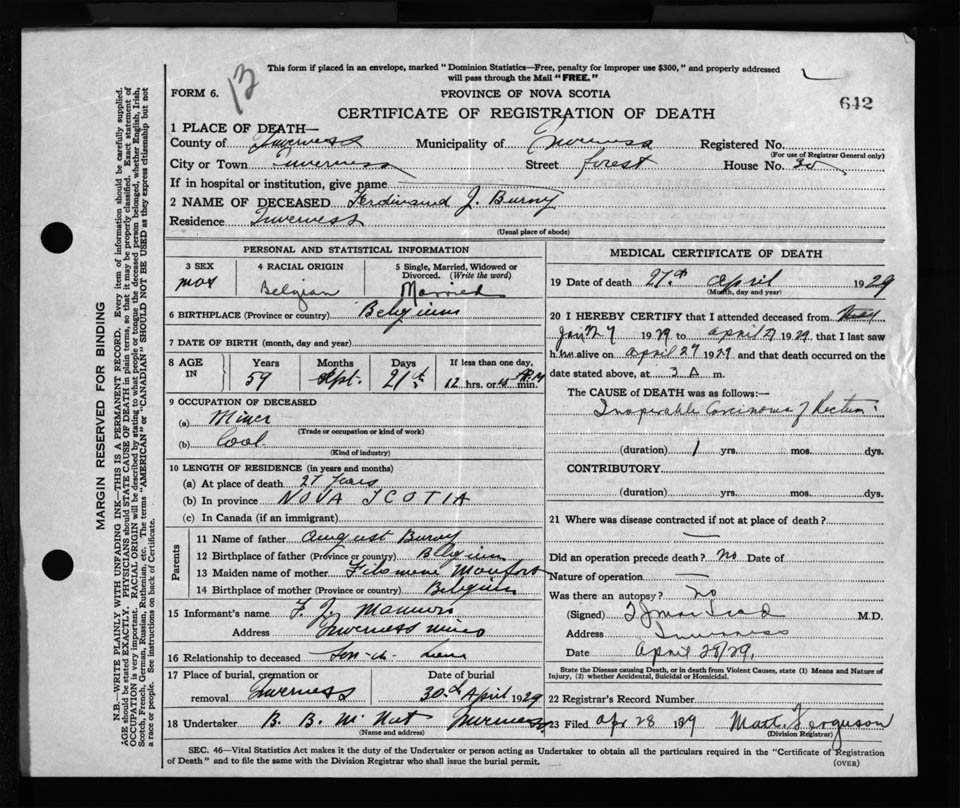 This form if placed in an envelope, marked "Dominion Statistics—Free, penalty for improper use $300," and properly addressed
will pass through the Mail "FREE."
13
FORM 6.
PROVINCE OF NOVA SCOTIA
642
CERTIFICATE OF REGISTRATION OF DEATH
1 PLACE OF DEATH—
County of Inverness Municipality of Inverness Registered No.
(For use of Registrar General only)
City or Town Inverness Street Forest House No. 30
If in hospital or institution, give name
2 NAME OF DECEASED Ferdinand J. Burny
Residence Inverness
(Usual place of abode)
PERSONAL AND STATISTICAL INFORMATION
3 SEX
4 RACIAL ORIGIN
Belgian
5 Single, Married, Widowed or
Divorced. (Write the word)
Married
6 BIRTHPLACE (Province or country) Belgium
7 DATE OF BIRTH (month, day and year)
8 AGE IN
Years Months Days If less than one day,
59 Sept. 21st 12 hrs. or min.
9 OCCUPATION OF DECEASED
(a) Miner
(Trade or occupation or kind of work)
(b) Coal
(Kind of industry)
10 LENGTH OF RESIDENCE (in years and months)
(a) At place of death 27 years
(b) In province NOVA SCOTIA
(c) In Canada (if an immigrant)
Parents
11 Name of father August Burny
12 Birthplace of father (Province or country) Belgium
13 Maiden name of mother Filomene Monfort
14 Birthplace of mother (Province or country) Belgium
15 Informant's name F. J.
Address Inverness
16 Relationship to deceased Son-in-
17 Place of burial, cremation or
removal Inverness
Date of burial
30th April 1929
18 Undertaker B. B. McNut Inverness
(Name and address)
MEDICAL CERTIFICATE OF DEATH
19 Date of death 27th April 1929
(Month, day and year)
20 I HEREBY CERTIFY that I attended deceased from
Jan 27 1929 to April 27 1929 that I last saw
him alive on April 27 1929 and that death occurred on the
date stated above, at 3 A m.
The CAUSE OF DEATH was as follows:—
Inoperable Carcinoma of Rectum
(duration) 1 yrs. mos. dys.
CONTRIBUTORY
(duration) yrs. mos. dys.
21 Where was disease contracted if not at place of death?
Did an operation precede death? No Date of
Nature of operation
Was there an autopsy? No
(Signed) M.D.
Address Inverness
Date April 28/29
State the Disease causing Death, or in death from Violent Causes, state (1) Means and Nature of
Injury, (2) whether Accidental, Suicidal or Homicidal.
22 Registrar's Record Number
23 Filed Apr 28 1929 Matt. Ferguson
(Division Registrar)
SEC. 46—Vital Statistics Act makes it the duty of the Undertaker or person acting as Undertaker to obtain all the particulars required in the "Certificate of Registration
of Death" and to file the same with the Division Registrar who shall issue the burial permit.
(OVER)
MARGIN RESERVED FOR BINDING
N.B.—WRITE PLAINLY WITH UNFADING INK—THIS IS A PERMANENT RECORD. Every item of information should be carefully supplied.
AGE should be stated EXACTLY. PHYSICIANS should STATE CAUSE OF DEATH in plain terms, so that it may be properly classified. Exact statement of
OCCUPATION is very important. RACIAL ORIGIN will be described by stating to what people or tongue the deceased person belonged, whether English, Irish,
Scotch, French, German, Russian, Ruthenian, etc. The terms "AMERICAN" or "CANADIAN" SHOULD NOT BE USED as they express citizenship but not
a race or people. See instructions on back of Certificate.